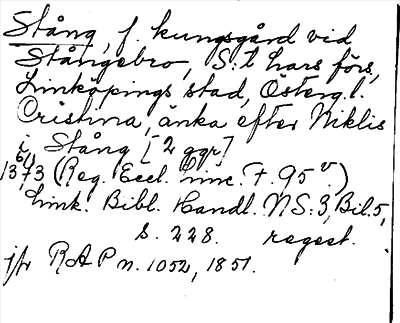 Stång, f. kungsgård vid
Stångebro, S:t Lars förs,
Linköpings stad, Österg. l.
Cristina, änka efter Niklis
i Stång [2 ggr]
13 73 (Reg. Eccl. Linc. F. 95 v.)
Link. Bibl. Handl. N S: 3, Bil. 5,
s. 228. regest.
jfr RAP n. 1052, 1851.